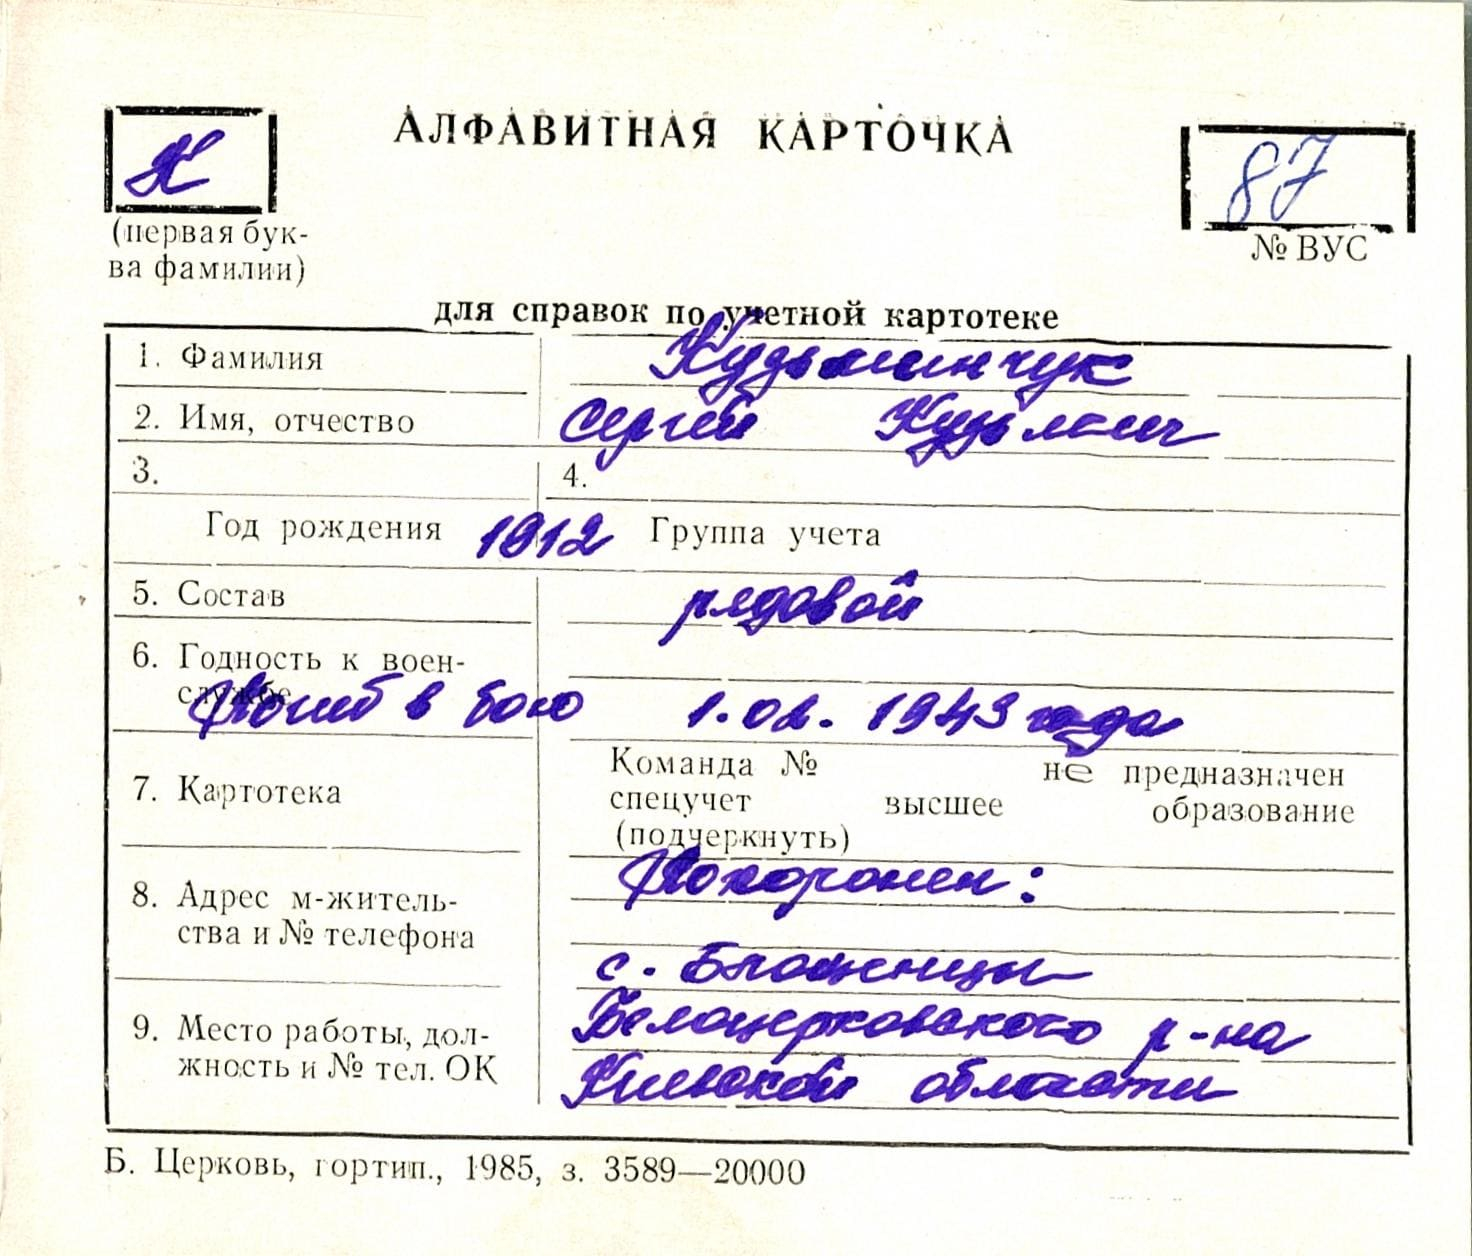 АЛФАВИТНАЯ КАРТОЧКА
К
87
(первая бук-
ва фамилии)
№ ВУС
для справок по учетной картотеке
1. Фамилия Кузьминчук
2. Имя, отчество Сергей Кузьмич
3. 4.
Год рождения 1912 Группа учета
5. Состав рядовой
6. Годность к воен-
службе
Погиб в бою 1.02.1943 года
7. Картотека
Команда № не предназначен
спецучет высшее образование
(подчеркнуть)
8. Адрес м-житель-
ства и № телефона
Похоронен:
с. Блощенцы
9. Место работы, дол-
жность и № тел. ОК
Белоцерковского р-на
Киевской области
Б. Церковь, гортип., 1985, з. 3589—20000